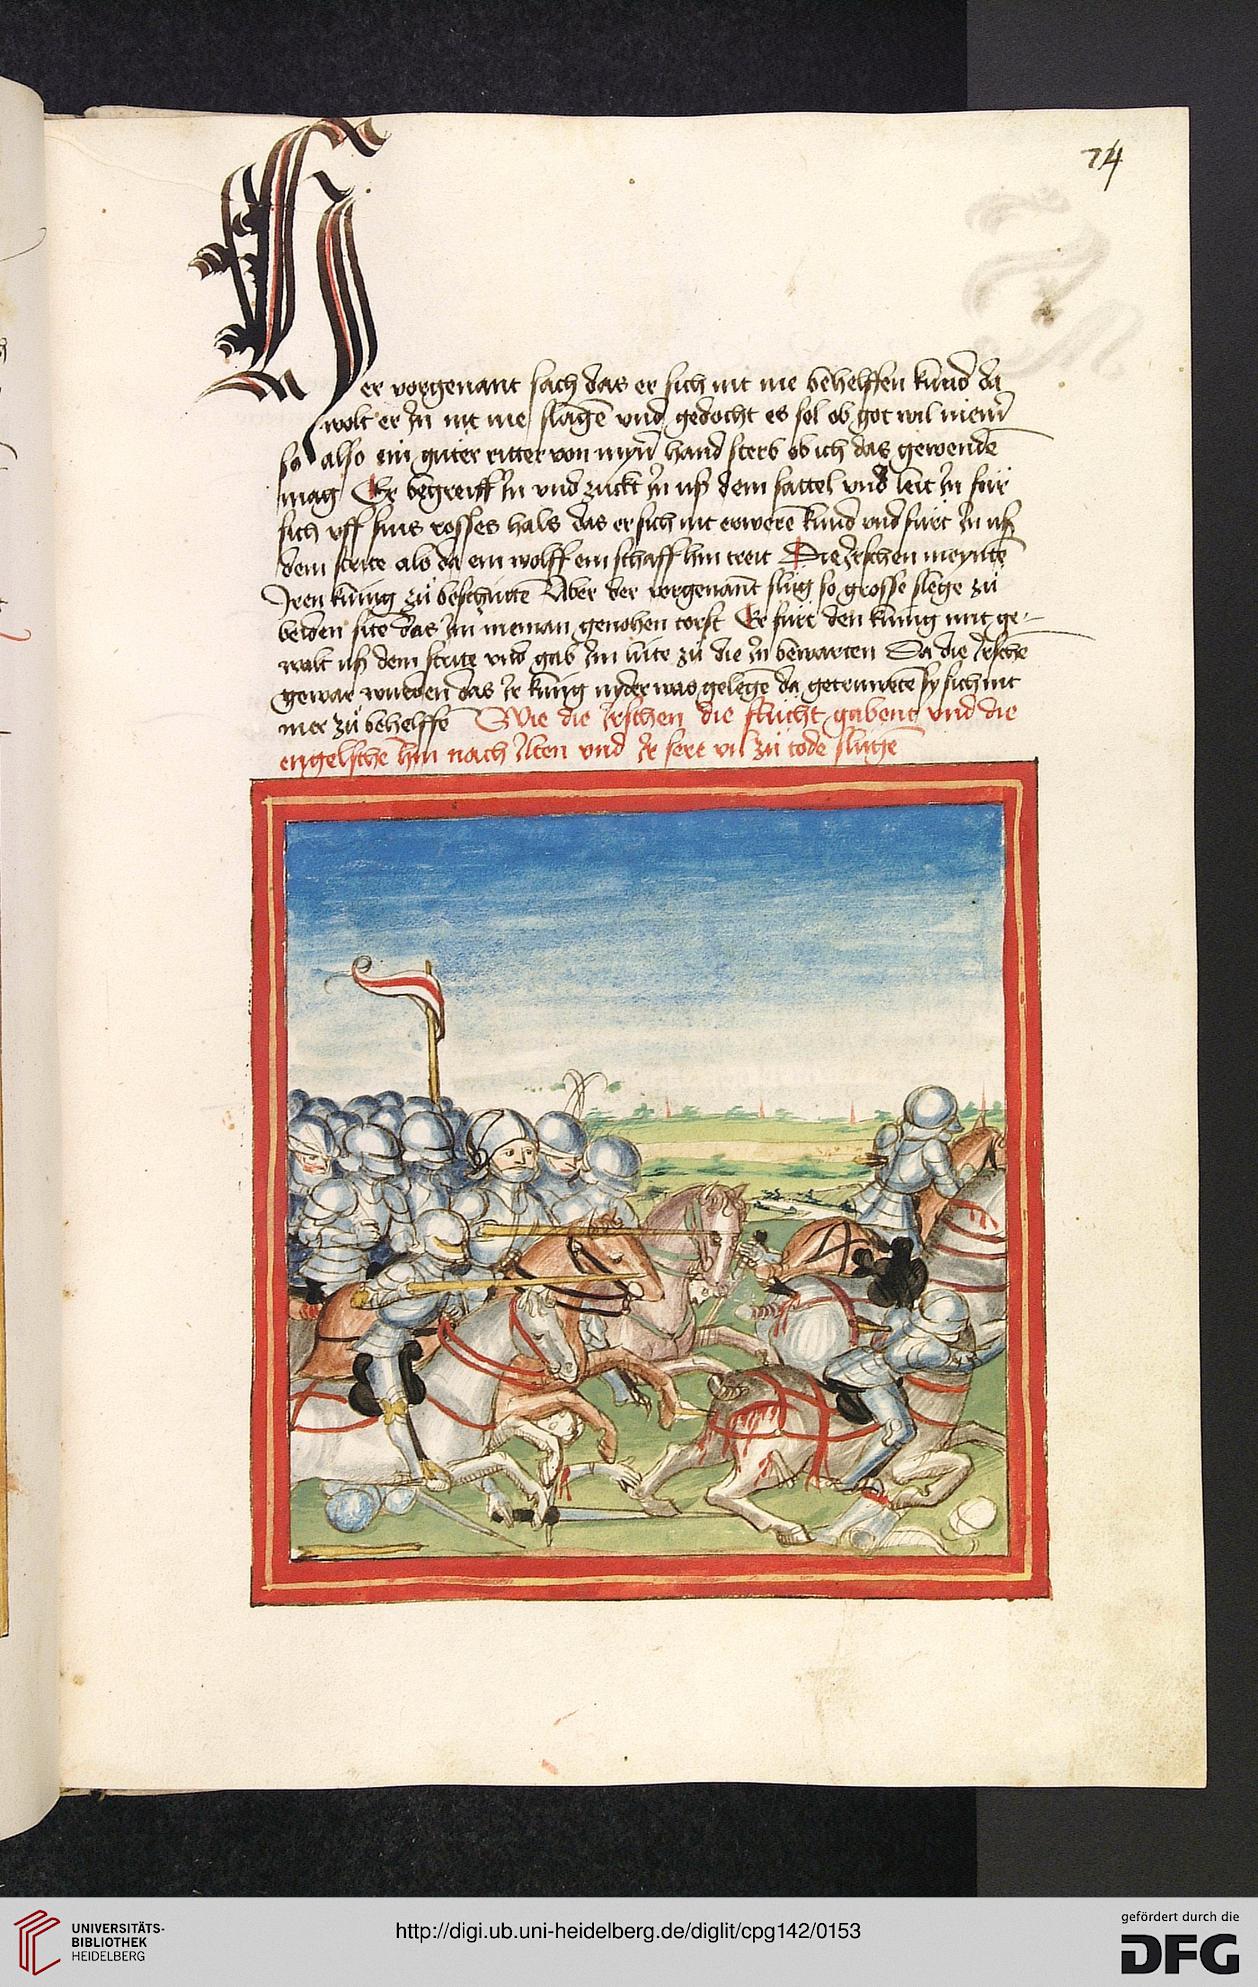 74
Her vorgenant sach das er sich nit me behelffen kund da
wolt er Jn nit me slagē vnd gedocht es sol ob got wil niem̄
so also ein guter ritter von myn̄ hand sterb ob ich das gewende
mag Er begreiff Jn vnd zuckt Jn uß dem sattel vnd leit Jn für
sich vff sins rosses hals das er sich nit erwerē kund vnd fürt Jn uß
dem strite als da ein wolff ein schaff hin treit Die Jrschen meyntē
Jren kunig zů beschüttē Aber der vorgenant slug so grosse slege zů
beiden site das Jm nieman genohen torst Er fürt den kunig mit ge-
walt uß dem strite vnd gab Jm lüte zů die Jn bewarten Da die Jrsche
gewar wurden das Jr kunig nyder was gelegē da getruwetē sy sich nit
mer zů behelffē Wie die Jrschen die flucht gabent vnd die
engelsche hin nach Jlten vnd Jr sere vil zů tode slugē
UNIVERSITÄTS-
BIBLIOTHEK
HEIDELBERG
http://digi.ub.uni-heidelberg.de/diglit/cpg142/0153
gefördert durch die
DFG